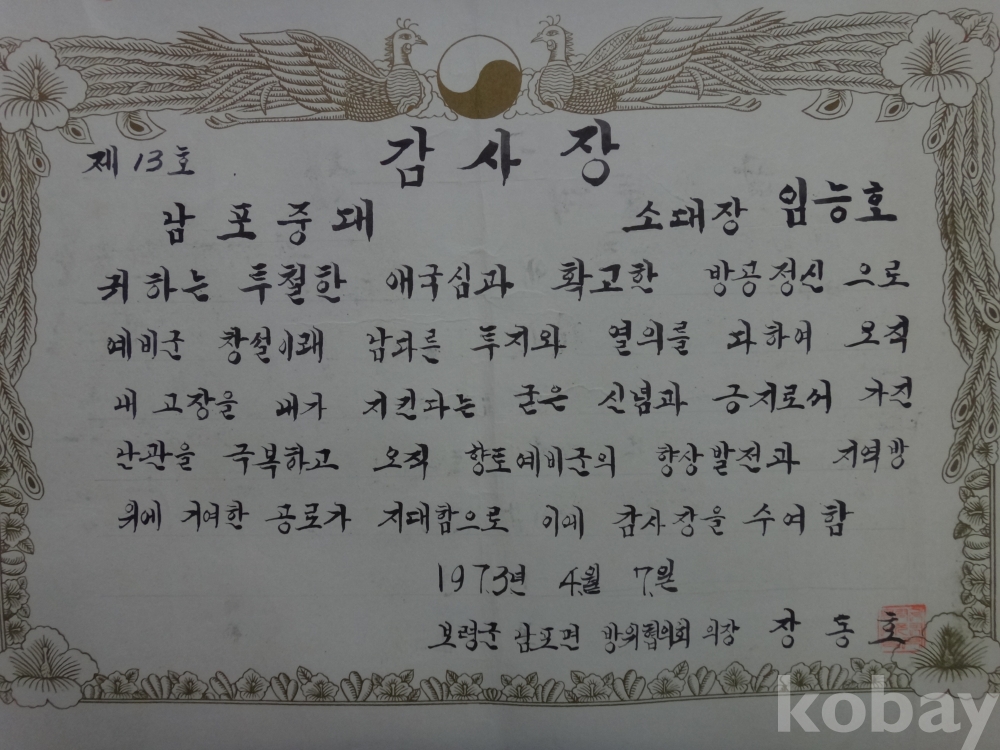 감사장
제 13 호
남포중대 소대장 임능호
귀하는 투철한 애국심과 확고한 방공정신으로
예비군 창설이래 남다른 투지와 열의를 다하여 오직
내 고장을 내가 지킨다는 굳은 신념과 긍지로서 가진
난관을 극복하고 오직 향토예비군의 향상발전과 지역방
위에 기여한 공로가 지대함으로 이에 감사장을 수여함
1973년 4월 7일
보령군 남포면 방위협의회 의장 장동호
kobay